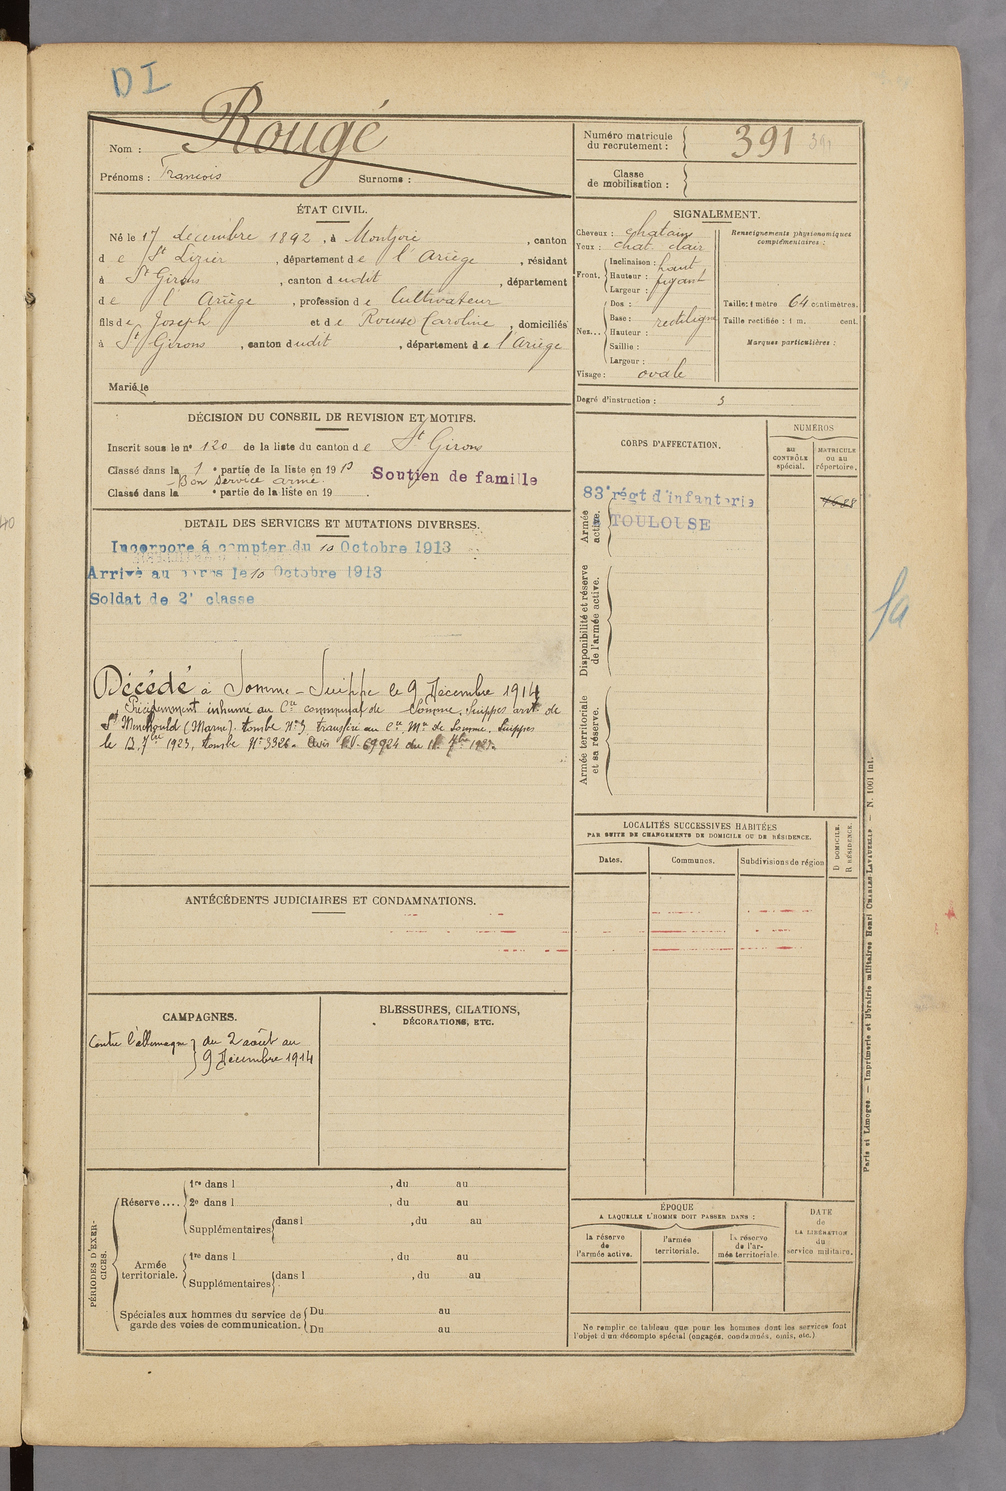 DI
Nom : Rougé
Prénoms : Francois Surnoms :
Numéro matricule du recrutement : 391 391
Classe de mobilisation :
ÉTAT CIVIL.
Né le 17 decembre 1892, à Montjoie, canton
de St Lizier, département de l'Ariège, résidant
à St Girons, canton dudit, département
de l'Ariège, profession de Cultivateur
fils de Joseph et de Rousse Caroline, domiciliés
à St Girons, canton dudit, département de l'Ariège
Marié le
SIGNALEMENT.
Cheveux : chatain
Yeux : chat. clair
Front. Inclinaison : haut
Hauteur : fuyant
Largeur :
Nez... Dos :
Base : rectiligne
Hauteur :
Saillie :
Largeur :
Visage : ovale
Renseignements physionomiques complémentaires :
Taille : 1 mètre 64 centimètres.
Taille rectifiée : 1 m. cent.
Marques particulières :
Degré d'instruction : 3
DÉCISION DU CONSEIL DE REVISION ET MOTIFS.
Inscrit sous le n° 120 de la liste du canton de St Girons
Classé dans la 1 e partie de la liste en 1913
Bon Service armé. Soutien de famille
Classé dans la e partie de la liste en 19
DETAIL DES SERVICES ET MUTATIONS DIVERSES.
Incorporé á compter du 10 Octobre 1913
Arrivé au corps le 10 Octobre 1913
Soldat de 2e classe
Décédé à Somme-Suippe le 9 Décembre 1914
Précédemment inhumé au Cre communal de Somme. Suippes arrt de
Ste Menehould (Marne). tombe N°3 transféré au Cre Mre de Somme. Suippes
le 12 7bre 1923, tombe N° 3326.
CORPS D'AFFECTATION.
NUMÉROS
au CONTRÔLE spécial.
MATRICULE ou au répertoire.
Armée active.
83e régt d'infanterie
TOULOUSE
Disponibilité et réserve de l'armée active.
Armée territoriale et sa réserve.
LOCALITÉS SUCCESSIVES HABITÉES
PAR SUITE DE CHANGEMENTS DE DOMICILE OU DE RÉSIDENCE.
Dates.
Communes.
Subdivisions de région
D DOMICILE.
R RÉSIDENCE.
ANTÉCÉDENTS JUDICIAIRES ET CONDAMNATIONS.
CAMPAGNES.
Contre l'allemagne du 2 août au
9 Décembre 1914
BLESSURES, CITATIONS,
DÉCORATIONS, ETC.
PÉRIODES D'EXERCICES.
Réserve .... 1re dans l , du au
2e dans l , du au
Supplémentaires dans l , du au
Armée territoriale. 1re dans l , du au
Supplémentaires dans l , du au
Spéciales aux hommes du service de garde des voies de communication. Du au
Du au
ÉPOQUE
A LAQUELLE L'HOMME DOIT PASSER DANS :
la réserve de l'armée active.
l'armée territoriale.
la réserve de l'armée territoriale.
DATE de LA LIBÉRATION du service militaire.
Ne remplir ce tableau que pour les hommes dont les services font
l'objet d'un décompte spécial (engagés, condamnés, omis, etc.)
Paris et Limoges — Imprimerie et librairie militaires Henri CHARLES-LAVAUZELLE — N. 1001 int.